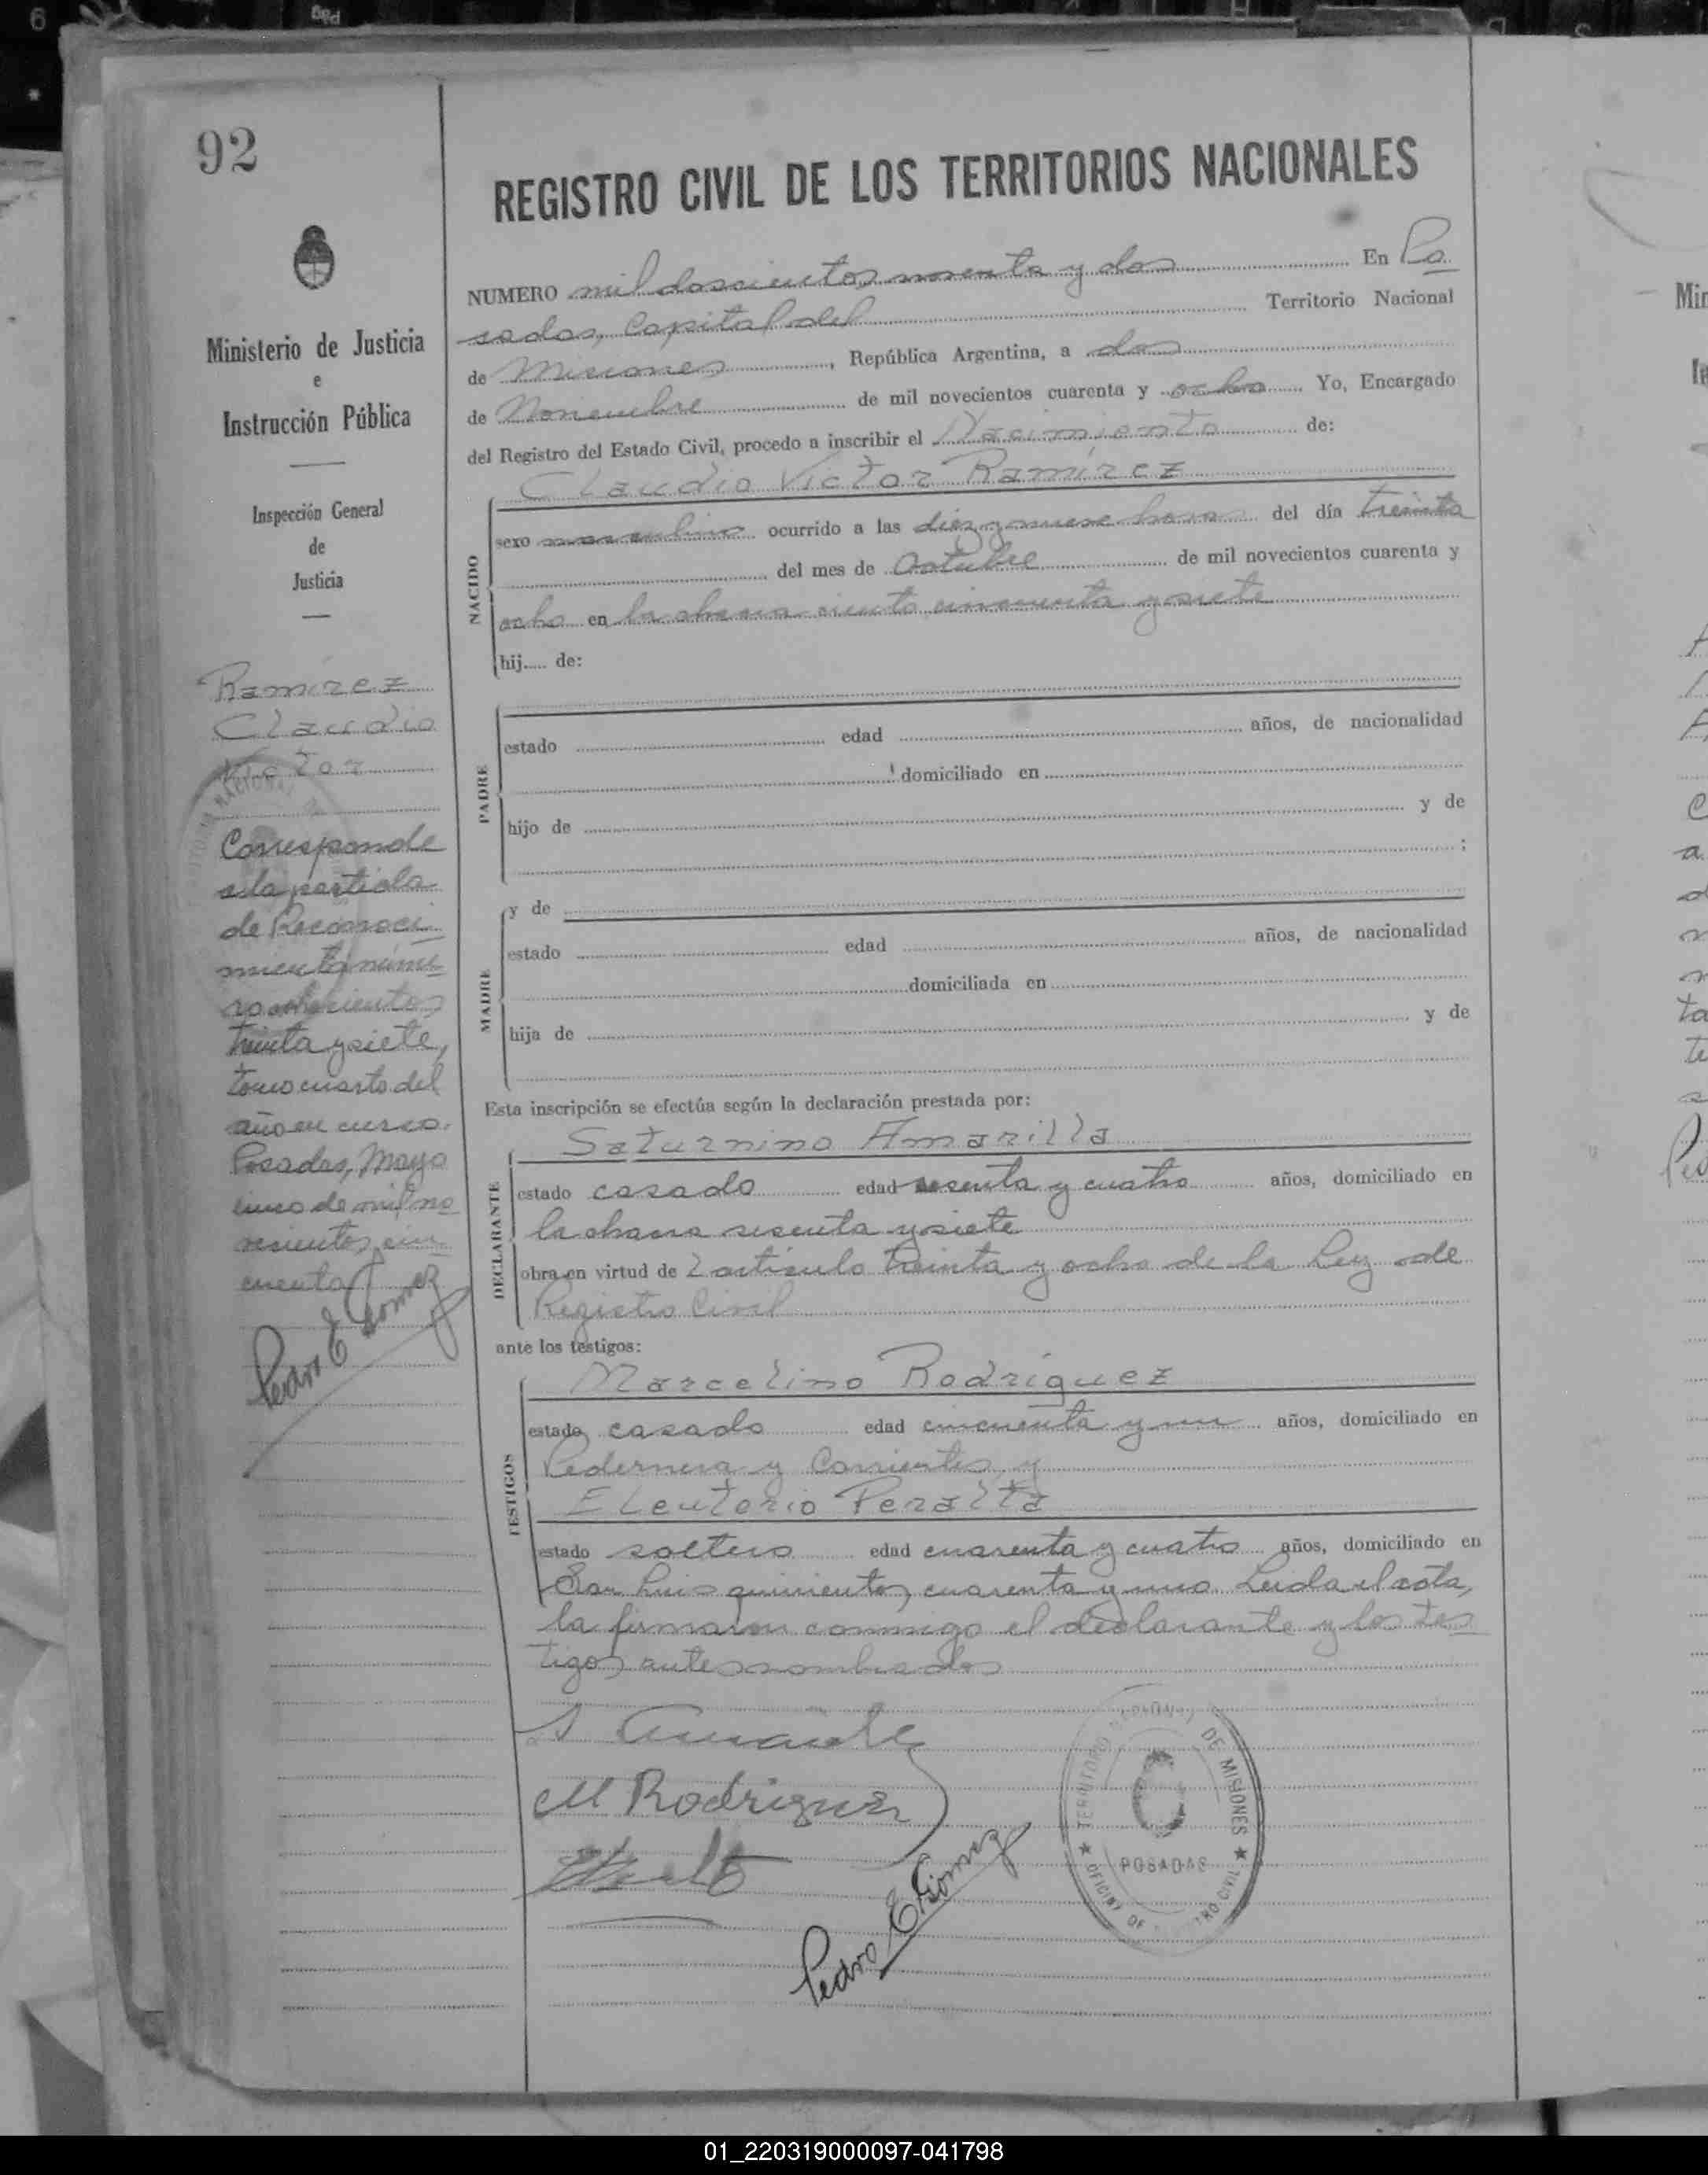 92
Ministerio de Justicia
e
Instrucción Pública
Inspección General
de
Justicia
Ramírez
Claudio
Victor
Corresponde
a la partida
de Reconoci
miento núme
ro
treinta y siete,
tomo cuarto del
año en curso.
Posadas, Mayo
cinco de mil no
vecientos cin
cuenta
Pedro E Gomez
REGISTRO CIVIL DE LOS TERRITORIOS NACIONALES
NUMERO mil doscientos noventa y dos En Po
sadas, Capital del Territorio Nacional
de Misiones, República Argentina, a dos
de Noviembre de mil novecientos cuarenta y ocho Yo, Encargado
del Registro del Estado Civil, procedo a inscribir el Nacimiento de:
Claudio Victor Ramírez
NACIDO
sexo masculino ocurrido a las diez y nueve horas del día treinta
del mes de Octubre de mil novecientos cuarenta y
ocho en la chacra ciento cincuenta y siete
hij..... de:
PADRE
estado edad años, de nacionalidad
domiciliado en
hijo de y de
;
MADRE
y de
estado edad años, de nacionalidad
domiciliada en
hija de y de
Esta inscripción se efectúa según la declaración prestada por:
Saturnino Amarilla
DECLARANTE
estado casado edad sesenta y cuatro años, domiciliado en
la chacra sesenta y siete
obra en virtud de l artículo treinta y ocho de la Ley de
Registro Civil
ante los testigos:
Marcelino Rodríguez
TESTIGOS
estado casado edad cincuenta y un años, domiciliado en
Pedernera y Corrientes y
Eleuterio Peralta
estado soltero edad cuarenta y cuatro años, domiciliado en
San Luis quinientos cuarenta y uno. Leida el acta,
la firmaron conmigo el declarante y los tes
tigos antes nombrados
M Rodriguez
Pedro E Gomez
TERRITORIO NACIONAL DE MISIONES
POSADAS
01_220319000097-041798